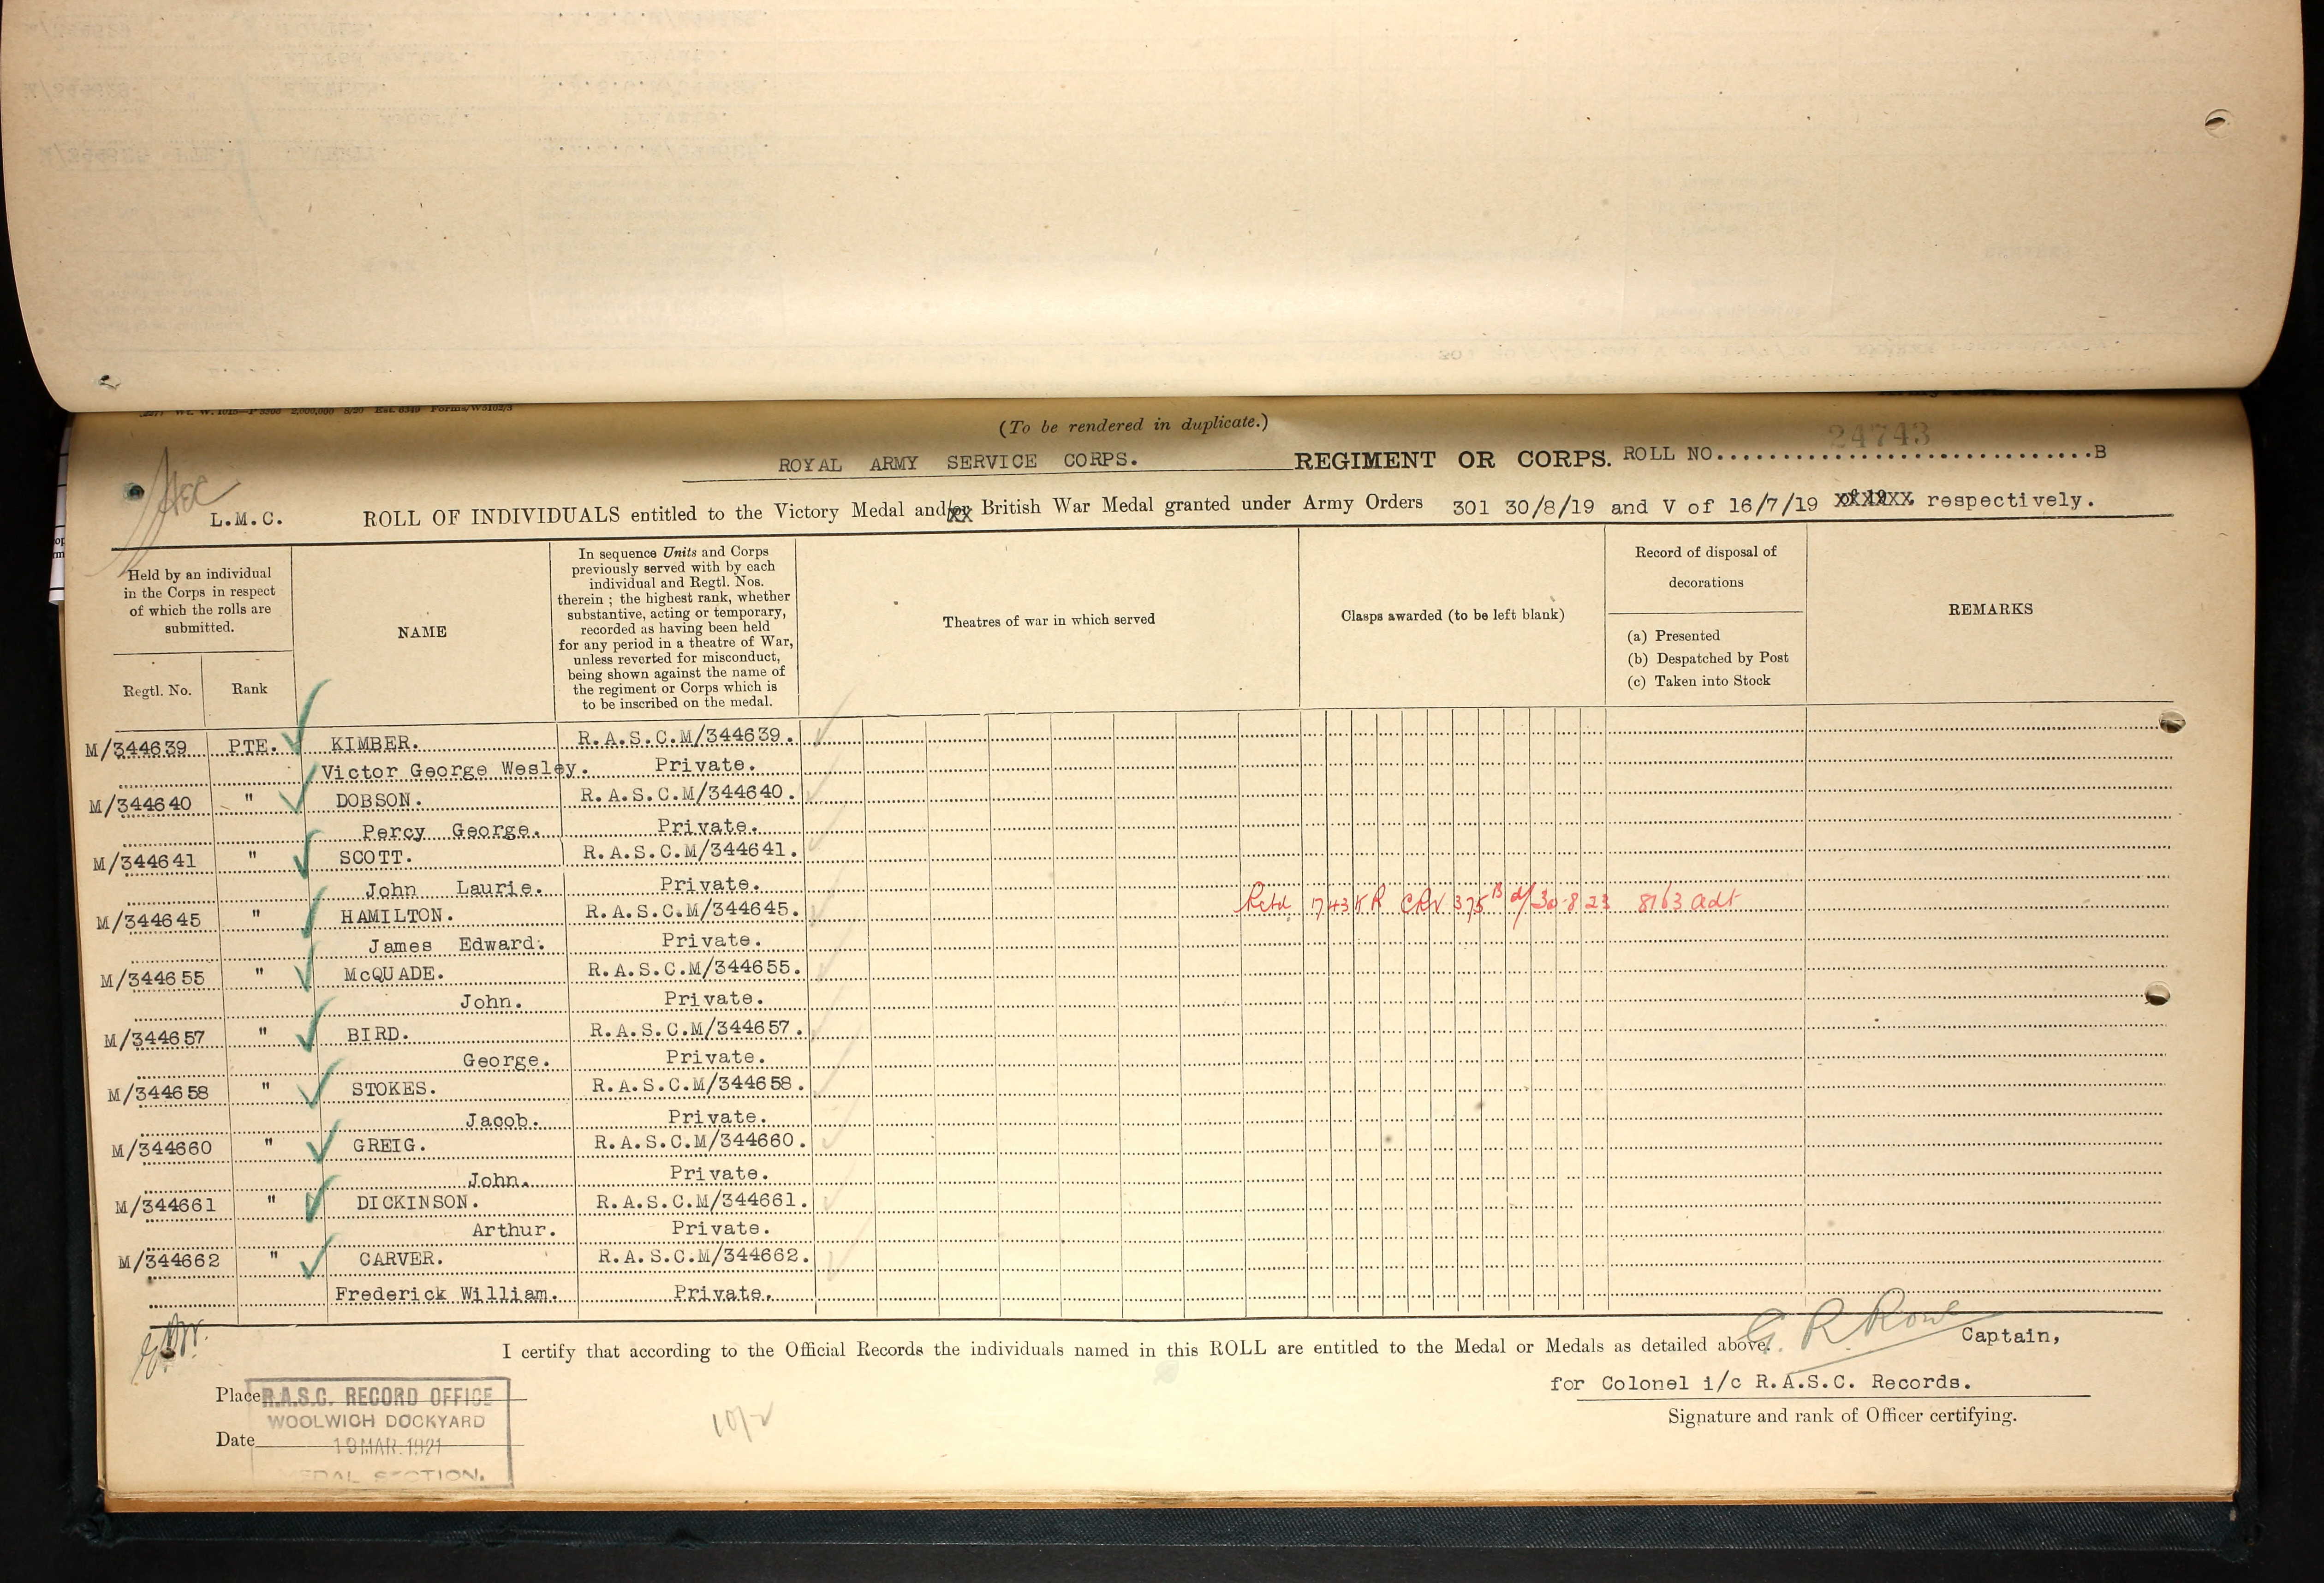 (To be rendered in duplicate.)
24743
ROYAL ARMY SERVICE CORPS. REGIMENT OR CORPS. ROLL NO..............................B
L.M.C. ROLL OF INDIVIDUALS entitled to the Victory Medal and/or British War Medal granted under Army Orders 301 30/8/19 and V of 16/7/19 respectively.
Held by an individual
in the Corps in respect
of which the rolls are
submitted.
Regtl. No.
Rank
NAME
In sequence Units and Corps
previously served with by each
individual and Regtl. Nos.
therein ; the highest rank, whether
substantive, acting or temporary,
recorded as having been held
for any period in a theatre of War,
unless reverted for misconduct,
being shown against the name of
the regiment or Corps which is
to be inscribed on the medal.
Theatres of war in which served
Clasps awarded (to be left blank)
Record of disposal of
decorations
(a) Presented
(b) Despatched by Post
(c) Taken into Stock
REMARKS
M/344639 PTE. KIMBER. R.A.S.C.M/344639.
Victor George Wesley. Private.
M/344640 " DOBSON. R.A.S.C.M/344640.
Percy George. Private.
M/344641 " SCOTT. R.A.S.C.M/344641.
John Laurie. Private.
M/344645 " HAMILTON. R.A.S.C.M/344645. Retd 1743 KR CRV 375B d/ 30-8-23 8163 adt
James Edward. Private.
M/344655 " McQUADE. R.A.S.C.M/344655.
John. Private.
M/344657 " BIRD. R.A.S.C.M/344657.
George. Private.
M/344658 " STOKES. R.A.S.C.M/344658.
Jacob. Private.
M/344660 " GREIG. R.A.S.C.M/344660.
John. Private.
M/344661 " DICKINSON. R.A.S.C.M/344661.
Arthur. Private.
M/344662 " CARVER. R.A.S.C.M/344662.
Frederick William. Private.
I certify that according to the Official Records the individuals named in this ROLL are entitled to the Medal or Medals as detailed above. G. R Rowe Captain,
for Colonel i/c R.A.S.C. Records.
Signature and rank of Officer certifying.
Place R.A.S.C. RECORD OFFICE
WOOLWICH DOCKYARD
Date 19 MAR. 1921
MEDAL SECTION.
10/2